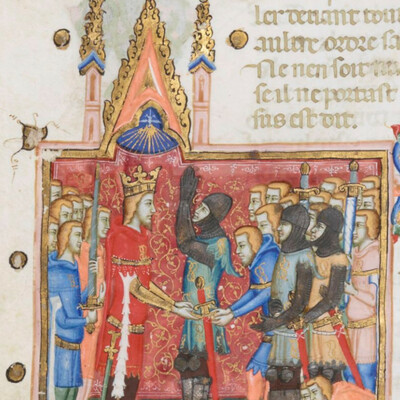 ler deuant tou
aultre ordre sa
Se nen soit
se il ne portast
sus est dit.